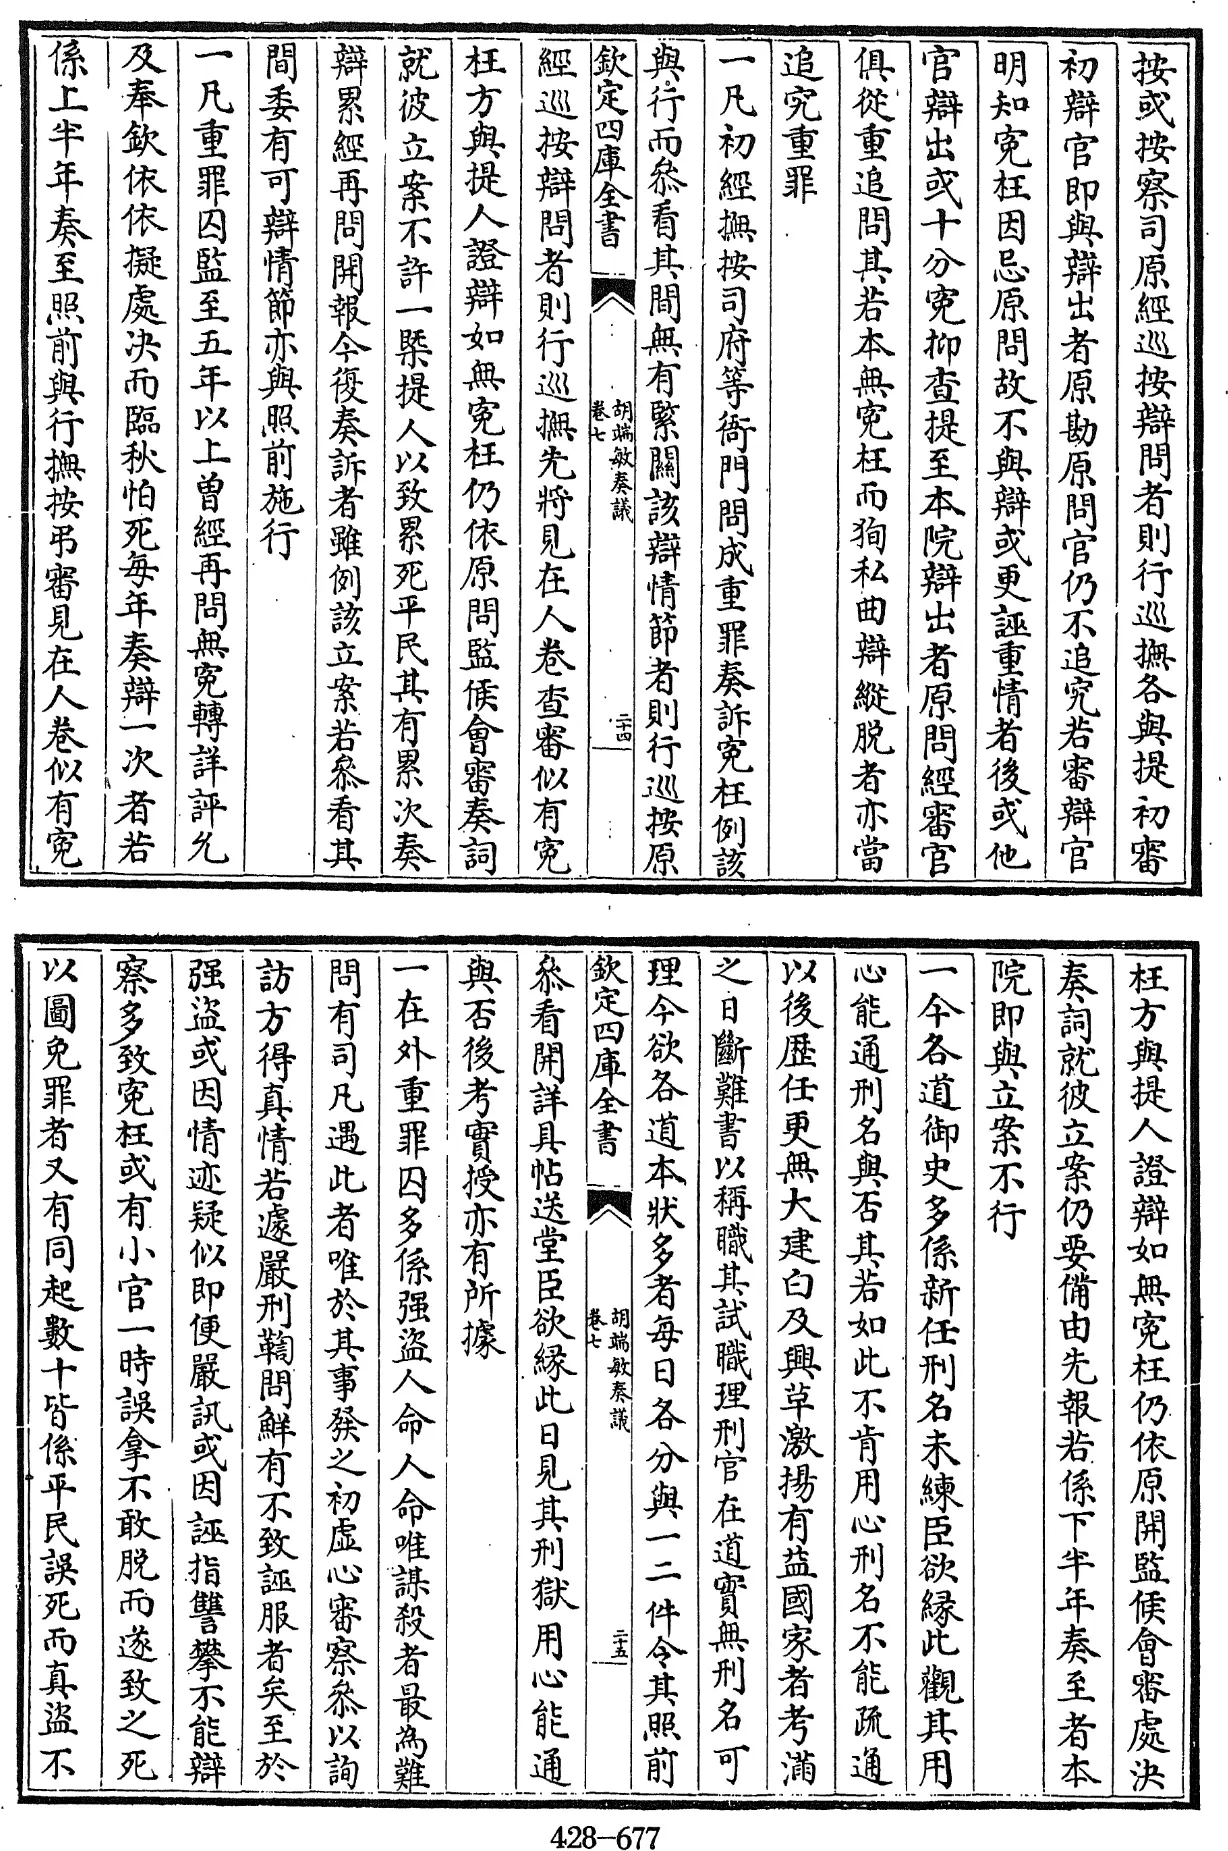 按或按察司原經巡按辯問者則行巡撫各與提初審
初辯官即與辯出者原勘原問官仍不追究若審辯官
明知寃枉因忌原問故不與辯或更誣重情者後或他
官辯出或十分寃抑查提至本院辯出者原問經審官
俱從重追問其若本無寃枉而狥私曲辯縱脱者亦當
追究重罪
一凡初經撫按司府等衙門問成重罪奏訴寃枉例該
與行而叅看其間無有緊關該辯情節者則行巡按原
欽定四庫全書
胡端敏奏議
卷七
二十四
經巡按辯問者則行巡撫先將見在人卷查審似有寃
枉方與提人證辯如無寃枉仍依原問監候會審奏詞
就彼立案不許一槩提人以致累死平民其有累次奏
辯累經再問開報今復奏訴者雖例該立案若叅看其
間委有可辯情節亦與照前施行
一凡重罪囚監至五年以上曾經再問無寃轉詳評允
及奉欽依依擬處決而臨秋怕死每年奏辯一次者若
係上半年奏至照前與行撫按弔審見在人卷似有寃
枉方與提人證辯如無寃枉仍依原開監候會審處決
奏詞就彼立案仍要備由先報若係下半年奏至者本
院即與立案不行
一今各道御史多係新任刑名未練臣欲縁此觀其用
心能通刑名與否其若如此不肯用心刑名不能疏通
以後歴任更無大建白及興革激揚有益國家者考滿
之日斷難書以稱職其試職理刑官在道實無刑名可
理今欲各道本狀多者每日各分與一二件令其照前
欽定四庫全書
胡端敏奏議
卷七
二十五
叅看開詳具帖送堂臣欲縁此日見其刑獄用心能通
與否後考實授亦有所據
一在外重罪囚多係强盗人命人命唯謀殺者最為難
問有司凡遇此者唯於其事發之初虚心審察叅以詢
訪方得真情若遽嚴刑鞫問鮮有不致誣服者矣至於
强盗或因情迹疑似即便嚴訊或因誣指讐攀不能辯
察多致寃枉或有小官一時誤拿不敢脱而遂致之死
以圖免罪者又有同起數十皆係平民誤死而真盗不
428-677